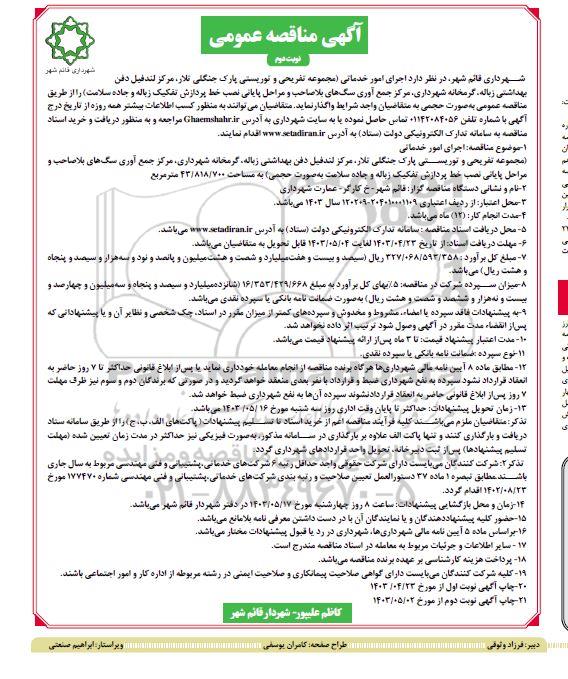 آگهی مناقصه عمومی
نوبت دوم
شهرداری قائم شهر
شهرداری قائم شهر، در نظر دارد اجرای امور خدماتی (مجموعه تفریحی و توریستی پارک جنگلی تلار، مرکز لندفیل دفن
بهداشتی زباله، گرمخانه شهرداری، مرکز جمع آوری سگ‌های بلاصاحب و مراحل پایانی نصب خط پردازش تفکیک زباله و جاده سلامت) را از طریق
مناقصه عمومی به‌صورت حجمی به متقاضیان واجد شرایط واگذار نماید. متقاضیان می‌توانند به منظور کسب اطلاعات بیشتر همه روزه از تاریخ درج
آگهی با شماره تلفن ۰۱۱۴۲۰۸۴۰۵۶ تماس حاصل نموده یا به سایت شهرداری به آدرس Ghaemshahr.ir مراجعه و به منظور دریافت و خرید اسناد
مناقصه به سامانه تدارک الکترونیکی دولت (ستاد) به آدرس www.setadiran.ir اقدام نمایند.
۱-موضوع مناقصه: اجرای امور خدماتی
(مجموعه تفریحی و توریستی پارک جنگلی تلار، مرکز لندفیل دفن بهداشتی زباله، گرمخانه شهرداری، مرکز جمع آوری سگ‌های بلاصاحب و
مراحل پایانی نصب خط پردازش تفکیک زباله و جاده سلامت به‌صورت حجمی) به مساحت ۴۳/۸۱۸/۷۰۰ مترمربع
۲-نام و نشانی دستگاه مناقصه گزار: قائم شهر - خ کارگر- عمارت شهرداری
۳-محل اعتبار: از ردیف اعتباری ۲۰۴۰۱۰۰۰۱۱۰۹-۱۲۰۲۰۹ سال ۱۴۰۳ می‌باشد.
۴-مدت انجام کار: (۱۲) ماه می‌باشد.
۵- محل دریافت اسناد مناقصه : سامانه تدارک الکترونیکی دولت (ستاد) به آدرس www.setadiran.ir می‌باشد.
۶- مهلت دریافت اسناد: از تاریخ ۱۴۰۳/۰۴/۲۳ لغایت ۱۴۰۳/۰۵/۰۴ قابل تحویل به متقاضیان می‌باشد.
۷-مبلغ کل برآورد : ۳۲۷/۰۶۸/۵۹۳/۳۵۸ ریال (سیصد و بیست و هفت‌میلیارد و شصت و هشت‌میلیون و پانصد و نود و سه‌هزار و سیصد و پنجاه
و هشت ریال) می‌باشد.
۸-میزان سپرده شرکت در مناقصه: ۵٪بهای کل برآورد به مبلغ ۱۶/۳۵۳/۴۲۹/۶۶۸ (شانزده‌میلیارد و سیصد و پنجاه و سه‌میلیون و چهارصد و
بیست و نه‌هزار و ششصد و شصت و هشت ریال) به‌صورت ضمانت نامه بانکی یا سپرده نقدی می‌باشد.
۹-به پیشنهادات فاقد سپرده یا امضاء، مشروط و مخدوش و سپرده‌های کمتر از میزان مقرر در اسناد، چک شخصی و نظایر آن و یا پیشنهاداتی که
پس‌از انقضاء مدت مقرر در آگهی وصول شود ترتیب اثر داده نخواهد شد.
۱۰- مدت اعتبار پیشنهاد قیمت: تا ۳ ماه پس‌از ارائه پیشنهاد قیمت می‌باشد.
۱۱-نوع سپرده :ضمانت نامه بانکی یا سپرده نقدی.
۱۲- مطابق ماده ۸ آیین نامه مالی شهرداری‌ها هرگاه برنده مناقصه از انجام معامله خودداری نماید یا پس‌از ابلاغ قانونی حداکثر تا ۷ روز حاضر به
انعقاد قرارداد نشود سپرده به نفع شهرداری ضبط و قرارداد با نفر بعدی منعقد خواهد گردید و در صورتی که برندگان دوم و سوم نیز ظرف مهلت
۷ روز پس‌از ابلاغ قانونی حاضر به انعقاد قرارداد نشوند سپرده آن‌ها به نفع شهرداری ضبط خواهد شد.
۱۳- زمان تحویل پیشنهادات: حداکثر تا پایان وقت اداری روز سه شنبه مورخ ۱۴۰۳/۰۵/۱۶ می‌باشد.
تذکر: متقاضیان ملزم می‌باشند کلیه فرآیند مناقصه اعم از خرید اسناد تا تسلیم پیشنهادات (پاکت‌های الف، ب، ج) را از طریق سامانه ستاد
دریافت و بارگذاری کنند و تنها پاکت الف علاوه بر بارگذاری در سامانه مذکور، به‌صورت فیزیکی نیز حداکثر در مدت زمان تعیین شده (مهلت
تسلیم پیشنهادها) پس‌از ثبت دبیرخانه، تحویل واحد قراردادهای شهرداری گردد.
تذکر۲: شرکت کنندگان می‌بایست دارای شرکت حقوقی واجد حداقل رتبه ۶ شرکت‌های خدماتی،پشتیبانی و فنی مهندسی مربوط به سال جاری
باشند.مطابق تبصره ۱ ماده ۳۷ دستورالعمل تعیین صلاحیت و رتبه بندی شرکت‌های خدماتی،پشتیبانی و فنی مهندسی شماره ۱۷۷۴۷۰ مورخ
۱۴۰۲/۰۸/۲۳ اقدام گردد.
۱۴-زمان و محل بازگشایی پیشنهادات: ساعت ۸ روز چهارشنبه مورخ ۱۴۰۳/۰۵/۱۷ در دفتر شهردار قائم شهر می‌باشد.
۱۵-حضور کلیه پیشنهاددهندگان و یا نمایندگان آن با در دست داشتن معرفی نامه بلامانع می‌باشد.
۱۶-براساس ماده ۵ آیین نامه مالی شهرداری‌ها، شهرداری در رد یا قبول پیشنهادات مختار می‌باشد.
۱۷ - سایر اطلاعات و جزئیات مربوط به معامله در اسناد مناقصه مندرج است.
۱۸- پرداخت هزینه کارشناسی بر عهده برنده مناقصه می‌باشد.
۱۹-کلیه شرکت کنندگان می‌بایست دارای گواهی صلاحیت پیمانکاری و صلاحیت ایمنی در رشته مربوطه از اداره کار و امور اجتماعی باشند.
۲۰-چاپ آگهی نوبت اول از مورخ ۱۴۰۳/۰۴/۲۳
۲۱-چاپ آگهی نوبت دوم از مورخ ۱۴۰۳/۰۵/۰۲
کاظم علیپور- شهردار قائم شهر
دبیر: فرزاد وثوقی
طراح صفحه: کامران یوسفی
ویراستار: ابراهیم صنعتی
۰۲۱-۸۸۳۴۹۶۷۰-۵